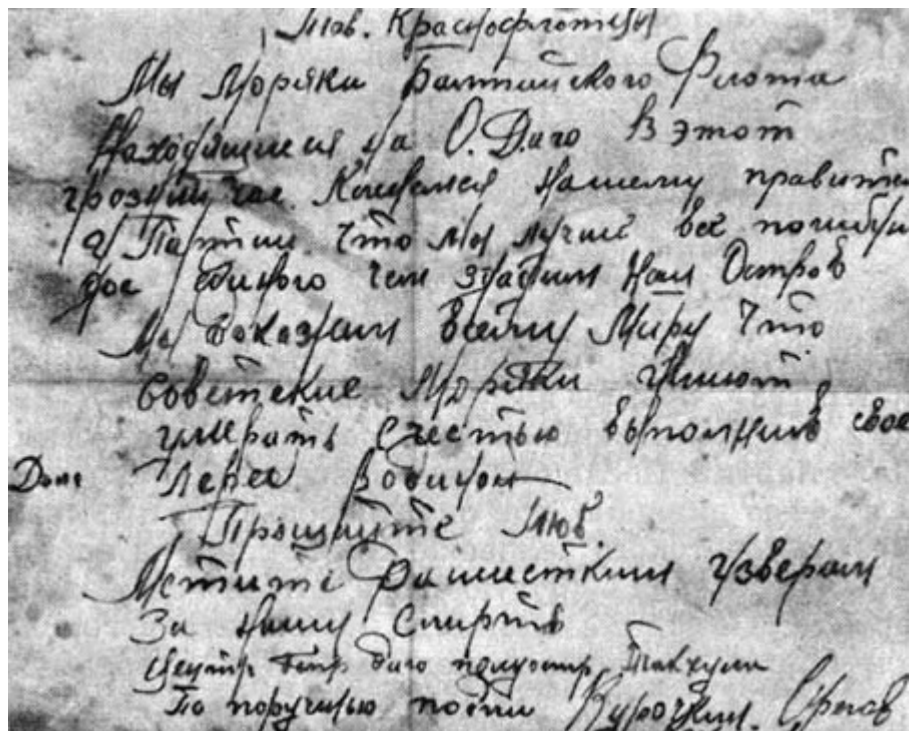 Тов. Краснофлотцы
Мы моряки Балтийского Флота
Находящиеся на О. Даго В этот
грозный час Клянемся нашему правител
и Партии Что мы лучше все погибнем
до единого чем здадим Наш Остров
Мы докажем всему Миру Что
Советские Моряки умеют
умерать С честью выполнив свое
Долг Перед Родиной
Прощайте Тов.
Мстите Фашистким извергам
За нашу Смерть
Даго полуостр Тахкуна
По поручению подпи Курочкин. Орлов